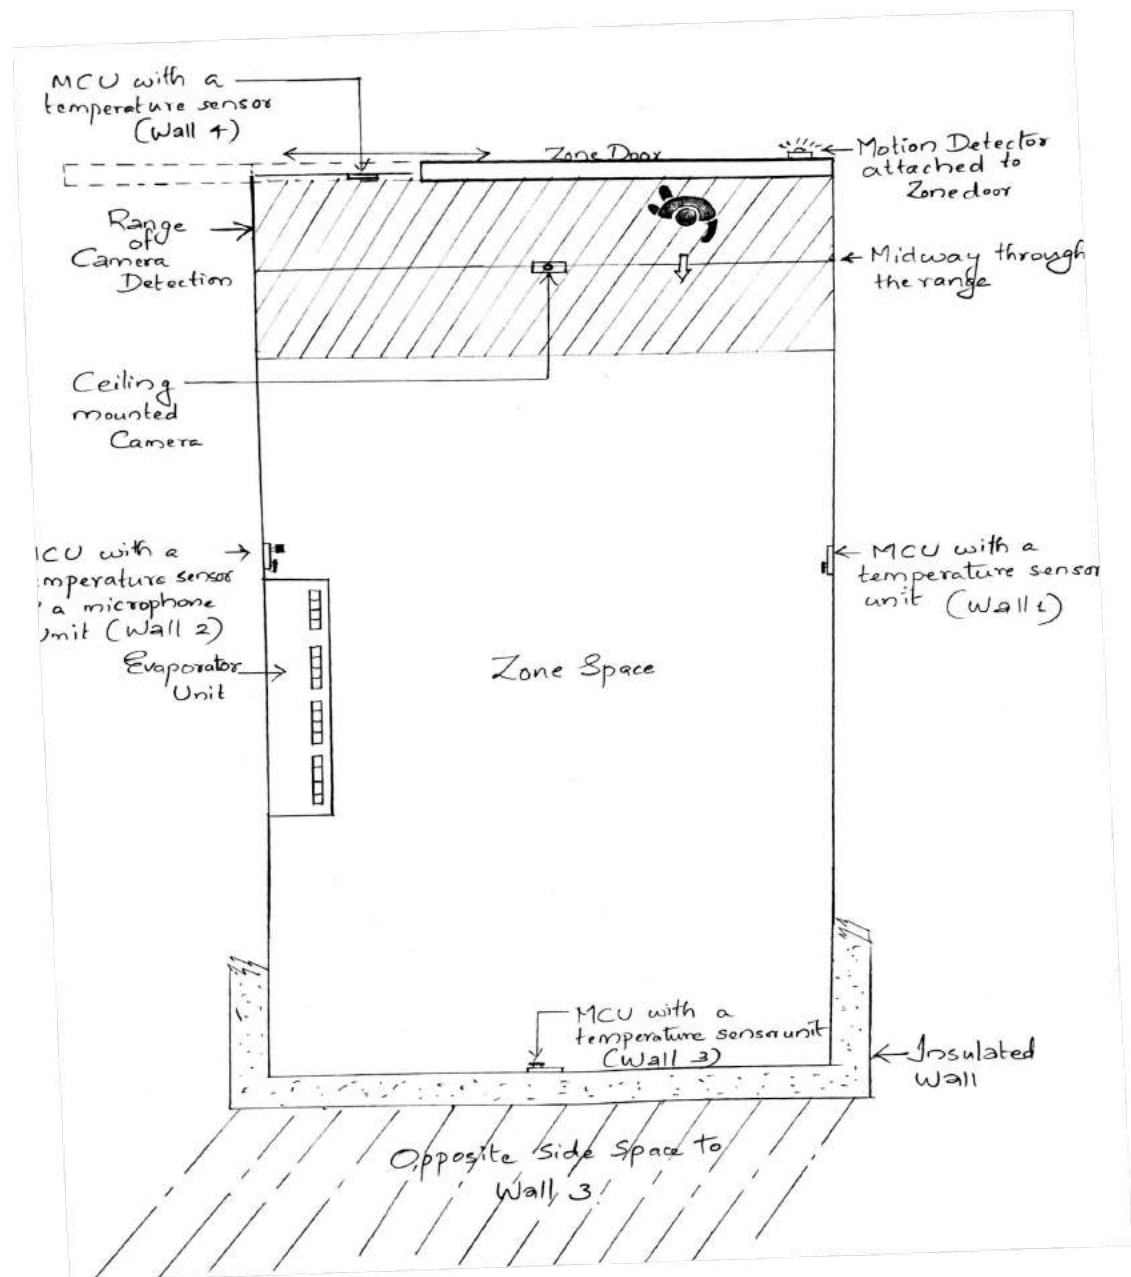 MCU with a
temperature sensor
(Wall 4)
Zone Door
Motion Detector
attached to
Zone door
Range
of
Camera
Detection
Midway through
the range
Ceiling
mounted
Camera
CU with a
mperature sensor
a microphone
nit (Wall 2)
MCU with a
temperature sensor
unit (Wall 1)
Evaporator
Unit
Zone Space
MCU with a
temperature sensor unit
(Wall 3)
Insulated
Wall
Opposite Side Space to
Wall 3